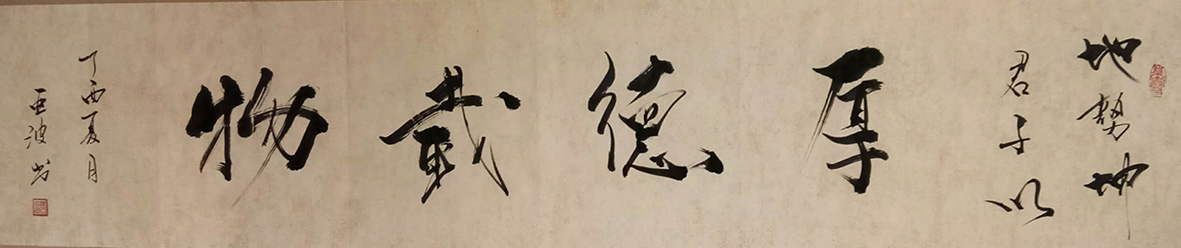 地势坤
君子以
厚德载物
丁酉夏月
亚波书